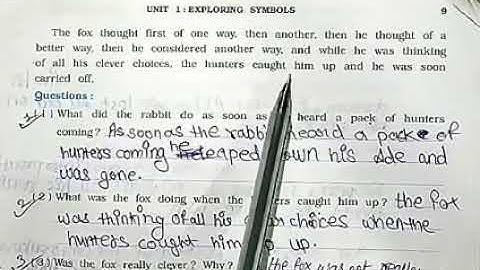 UNIT 1 : EXPLORING SYMBOLS 9
The fox thought first of one way, then another, then he thought of a
better way, then he considered another way, and while he was thinking
of all his clever choices, the hunters caught him up and he was soon
carried off.
Questions :
1 (1) What did the rabbit do as soon as heard a pack of hunters
coming? As soon as the rabbi heard a pack of
hunters coming he leaped own his side and
was gone.
2 (2) What was the fox doing when the caught him up? the fox
was thinking of all his choices when the
hunters caught him up.
3 (3) Was the fox really clever? Why? the fox was not really